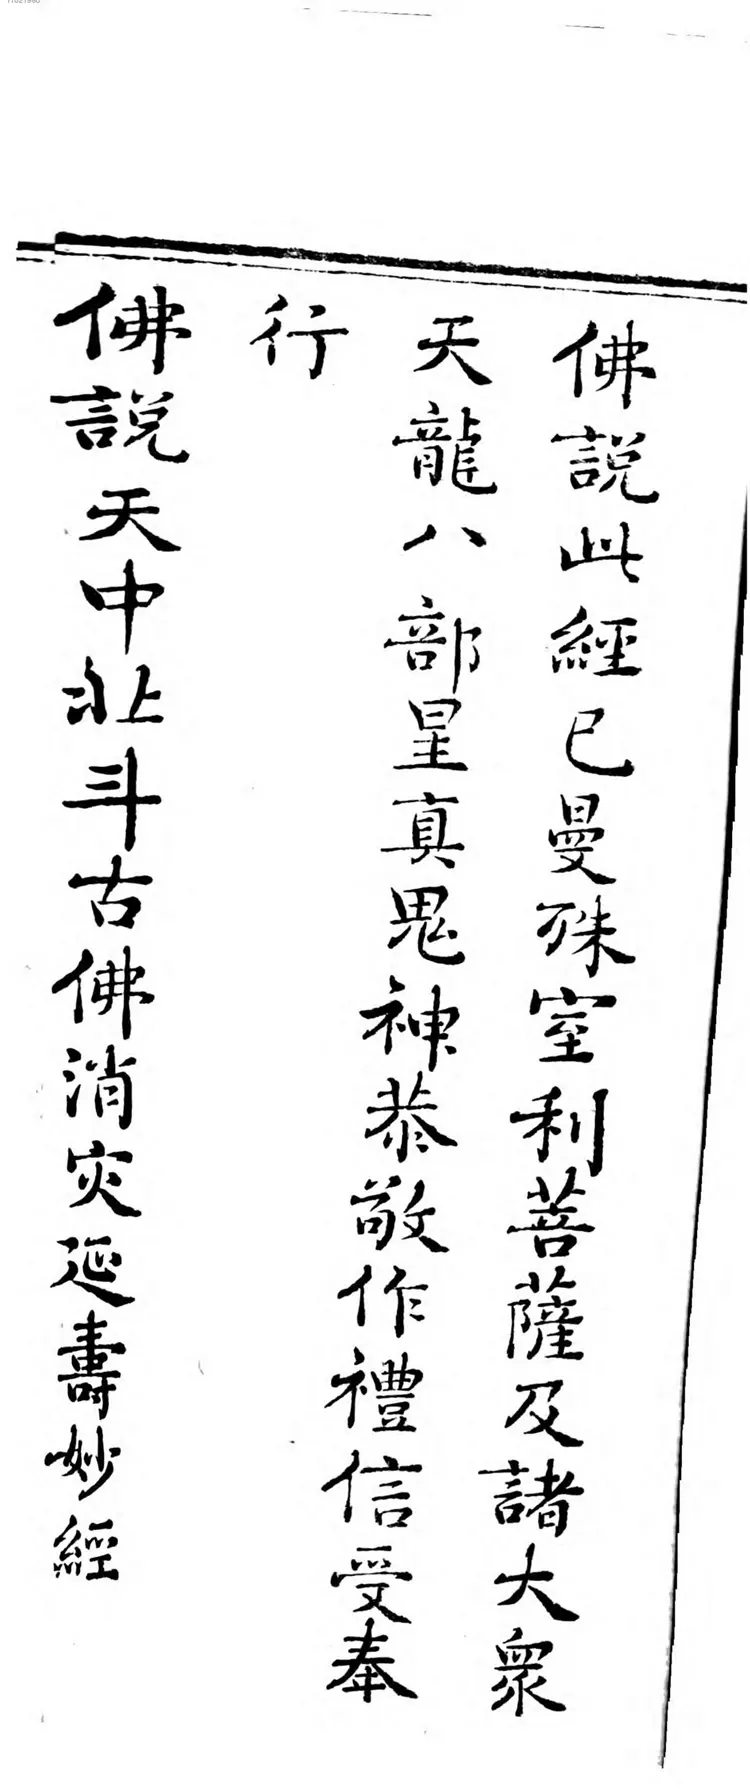 佛説此經已曼殊室利菩薩及諸大衆
天龍八部星真鬼神恭敬作禮信受奉
行
佛説天中北斗古佛消灾延壽妙經